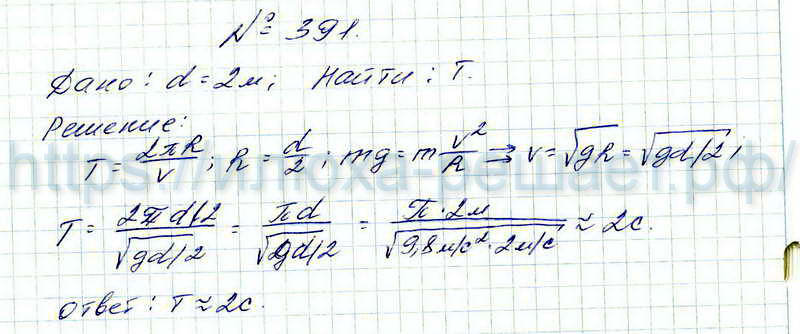 № 391.
Дано: d = 2м; Найти: T.
Решение:
T = 2πR/v; R = d/2; mg = m v²/R ⇒ v = √gR = √gd/2;
T = 2π d/2 / √gd/2 = πd / √gd/2 = π·2м / √9,8м/с²·2м/с ≈ 2с.
Ответ: T ≈ 2с.